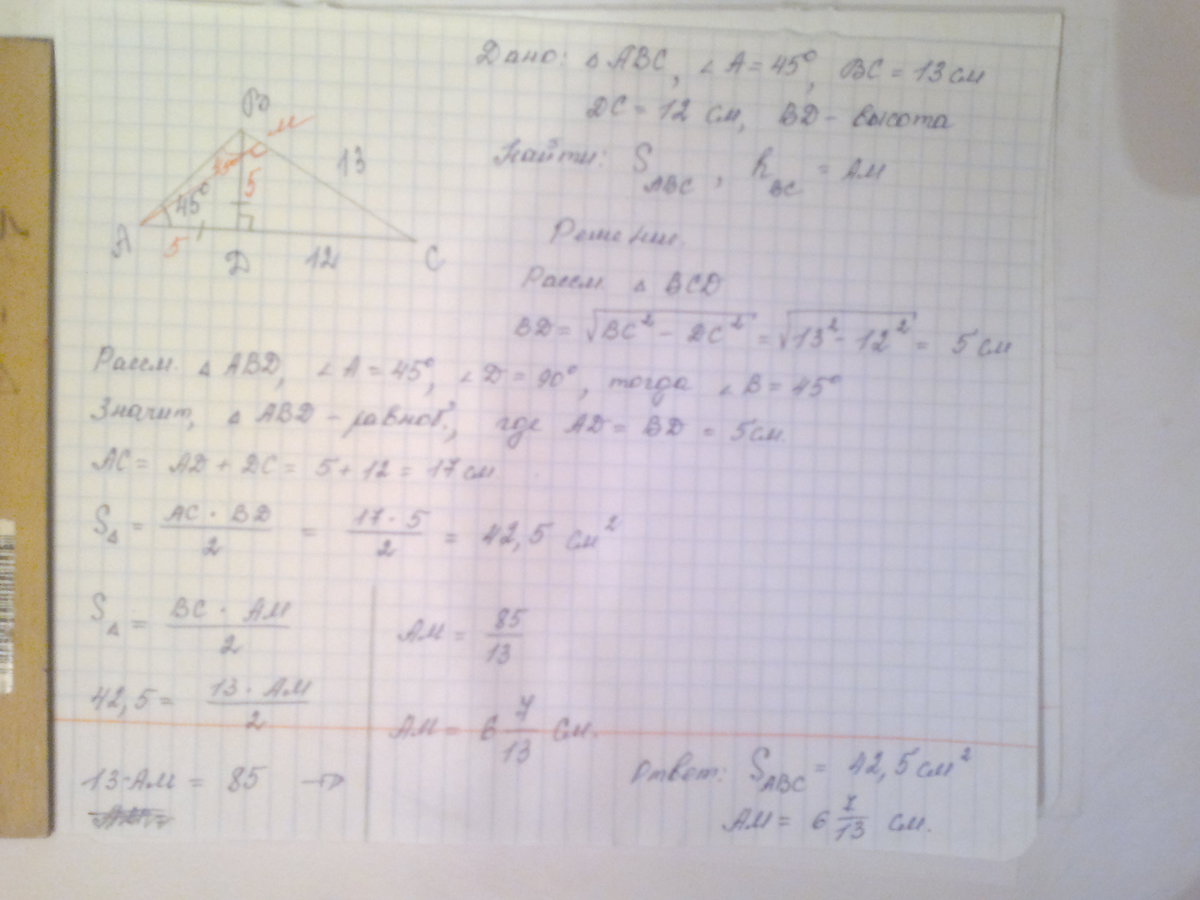 Дано: △ ABC, ∠A = 45°, BC = 13 см
DC = 12 см, BD - высота
Найти: S ABC, h BC = AM
Решение.
B
M
13
45°
5
A
5
D
12
C
Рассм. △ BCD
BD = √BC² - DC² = √13² - 12² = 5 см
Рассм. △ ABD, ∠A = 45°, ∠D = 90°, тогда ∠B = 45°
Значит, △ ABD - равноб., где AD = BD = 5 см.
AC = AD + DC = 5 + 12 = 17 см
S△ = AC · BD / 2 = 17 · 5 / 2 = 42,5 см²
S△ = BC · AM / 2
42,5 = 13 · AM / 2
13·AM = 85 →
AM =
AM = 85 / 13
AM = 6 7/13 см.
Ответ: S ABC = 42,5 см²
AM = 6 7/13 см.